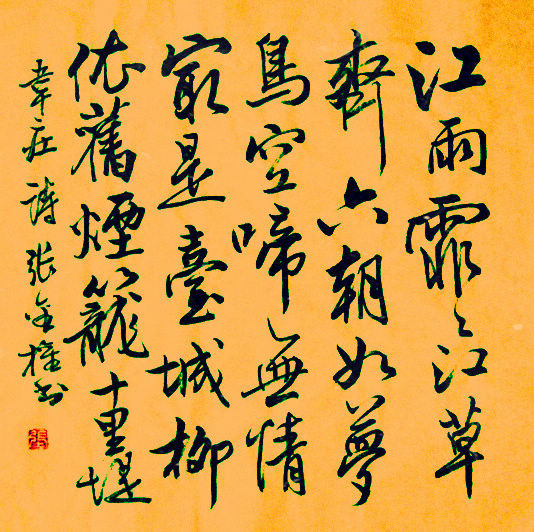 江雨霏〻江草
齊六朝如夢
鳥空啼無情
冣是臺城柳
依舊煙籠十里堤
韋莊詩張金權書
張